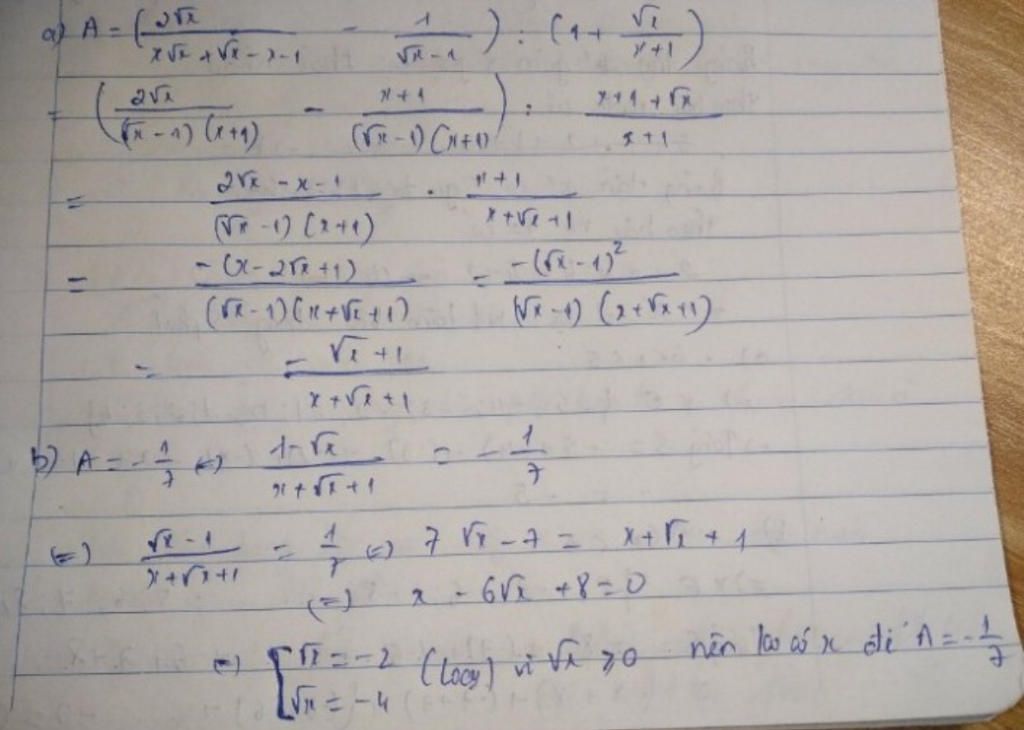 a) A = (2√x / (x√x + √x - x - 1) - 1 / (√x - 1)) : (1 + √x / (x + 1))
= (2√x / ((√x - 1)(x + 1)) - (x + 1) / ((√x - 1)(x + 1))) : (x + 1 + √x) / (x + 1)
= (2√x - x - 1) / ((√x - 1)(x + 1)) · (x + 1) / (x + √x + 1)
= -(x - 2√x + 1) / ((√x - 1)(x + √x + 1)) = -(√x - 1)² / ((√x - 1)(x + √x + 1))
= (-√x + 1) / (x + √x + 1)
b) A = -1/7 (=) (1 - √x) / (x + √x + 1) = -1/7
(=) (√x - 1) / (x + √x + 1) = 1/7 (=) 7√x - 7 = x + √x + 1
(=) x - 6√x + 8 = 0
(=) [ √x = -2
√x = -4 (loại) vì √x ≥ 0 nên ko có x để A = -1/7